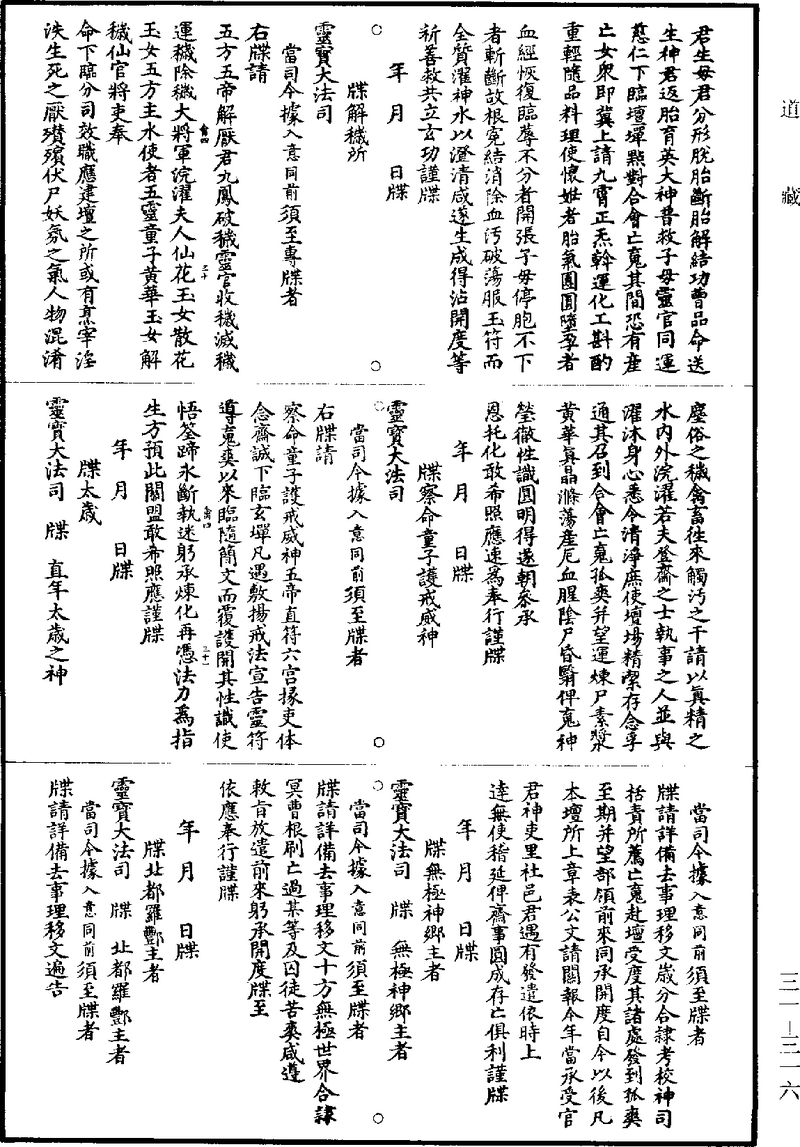 道藏
君生母君分形脫胎斷胎解結功曹品命送
生神君返胎育英大神普救子母靈官同運
慈仁下臨壇墠點對合會亡䰟其間恐有產
亡女衆即冀上請九霄正炁斡運化工斟酌
重輕隨品料理使懷妊者胎氣團圓墮孕者
血經恢復臨蓐不分者開張子母停胞不下
者斬斷故根寃結消除血汚破蕩服玉符而
全質濯神水以澄清咸遂生成得沾開度等
祈善救共立玄功謹牒
年　月　　日牒
牒解穢所
靈寶大法司
當司今據入意同前須至專牒者
右牒請
五方五帝解厭君九鳳破穢靈官收穢滅穢
運穢除穢大將軍浣濯夫人仙花玉女散花
玉女五方主水使者五靈童子黃華玉女解
穢仙官將吏奉
命下臨分司效職應建壇之所或有烹宰淫
泆生死之厭殗殯伏尸妖氛之氣人物混淆
塵俗之穢禽畜往來觸汚之干請以眞精之
水內外浣濯若夫登齋之士執事之人並與
濯沐身心悉令清淨庶使壇場精潔存念孚
通其召到合會亡䰟孤爽并望運煉尸素漿
黃華眞晶滌蕩產厄血腥陰尸昏翳俾䰟神
瑩徹性識圓明得遂朝參承
恩托化敢希照應速爲奉行謹牒
年　月　　日牒
牒察命童子護戒威神
靈寶大法司
當司今據入意同前須至牒者
右牒請
察命童子護戒威神五帝直符六宮掾吏体
念齋誠下臨玄墠凡遇敷揚戒法宣告靈符
導䰟爽以來臨隨簡文而覆護開其性識使
悟筌蹄永斷執迷躬承煉化再憑法力爲指
生方預此關盟敢希照應謹牒
年　月　　日牒
牒太歲
靈寶大法司　牒　直年太歲之神
當司今據入意同前須至牒者
牒請詳備去事理移文嵗分合隷考校神司
括責所薦亡䰟赴壇受度其諸處發到孤爽
至期并望部領前來同承開度自今以後凡
本壇所上章表公文請關報本年當承受官
君神吏里社邑君遇有發遣依時上
達無使稽延俾齋事圓成存亡俱利謹牒
年　月　　日牒
牒無極神鄉主者
靈寶大法司　牒　無極神鄉主者
當司今據入意同前須至牒者
牒請詳備去事理移文十方無極世界合隷
冥曹根刷亡過某等及囚徒苦爽咸遵
敕旨放遣前來躬承開度牒至
依應奉行謹牒
年　月　　日牒
牒北都羅酆主者
靈寶大法司　牒　北都羅酆主者
當司今據入意同前須至牒者
牒請詳備去事理移文遍告
三一—三一六